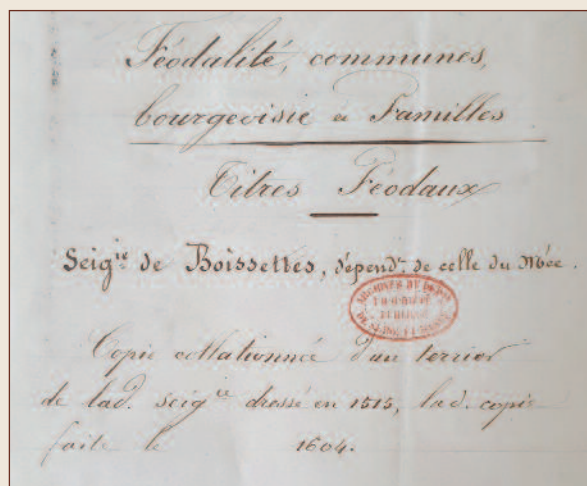 Féodalité, communes,
bourgeoisie et Familles
Titres Féodaux
Seig.ie de Boissettes, dépend.te de celle du Mée.
ARCHIVES DU DÉP.T
DE SEINE-ET-MARNE
Copie collationnée d'un terrier
de lad. seig.ie dressé en 1515, lad. copie
faite le 1604.